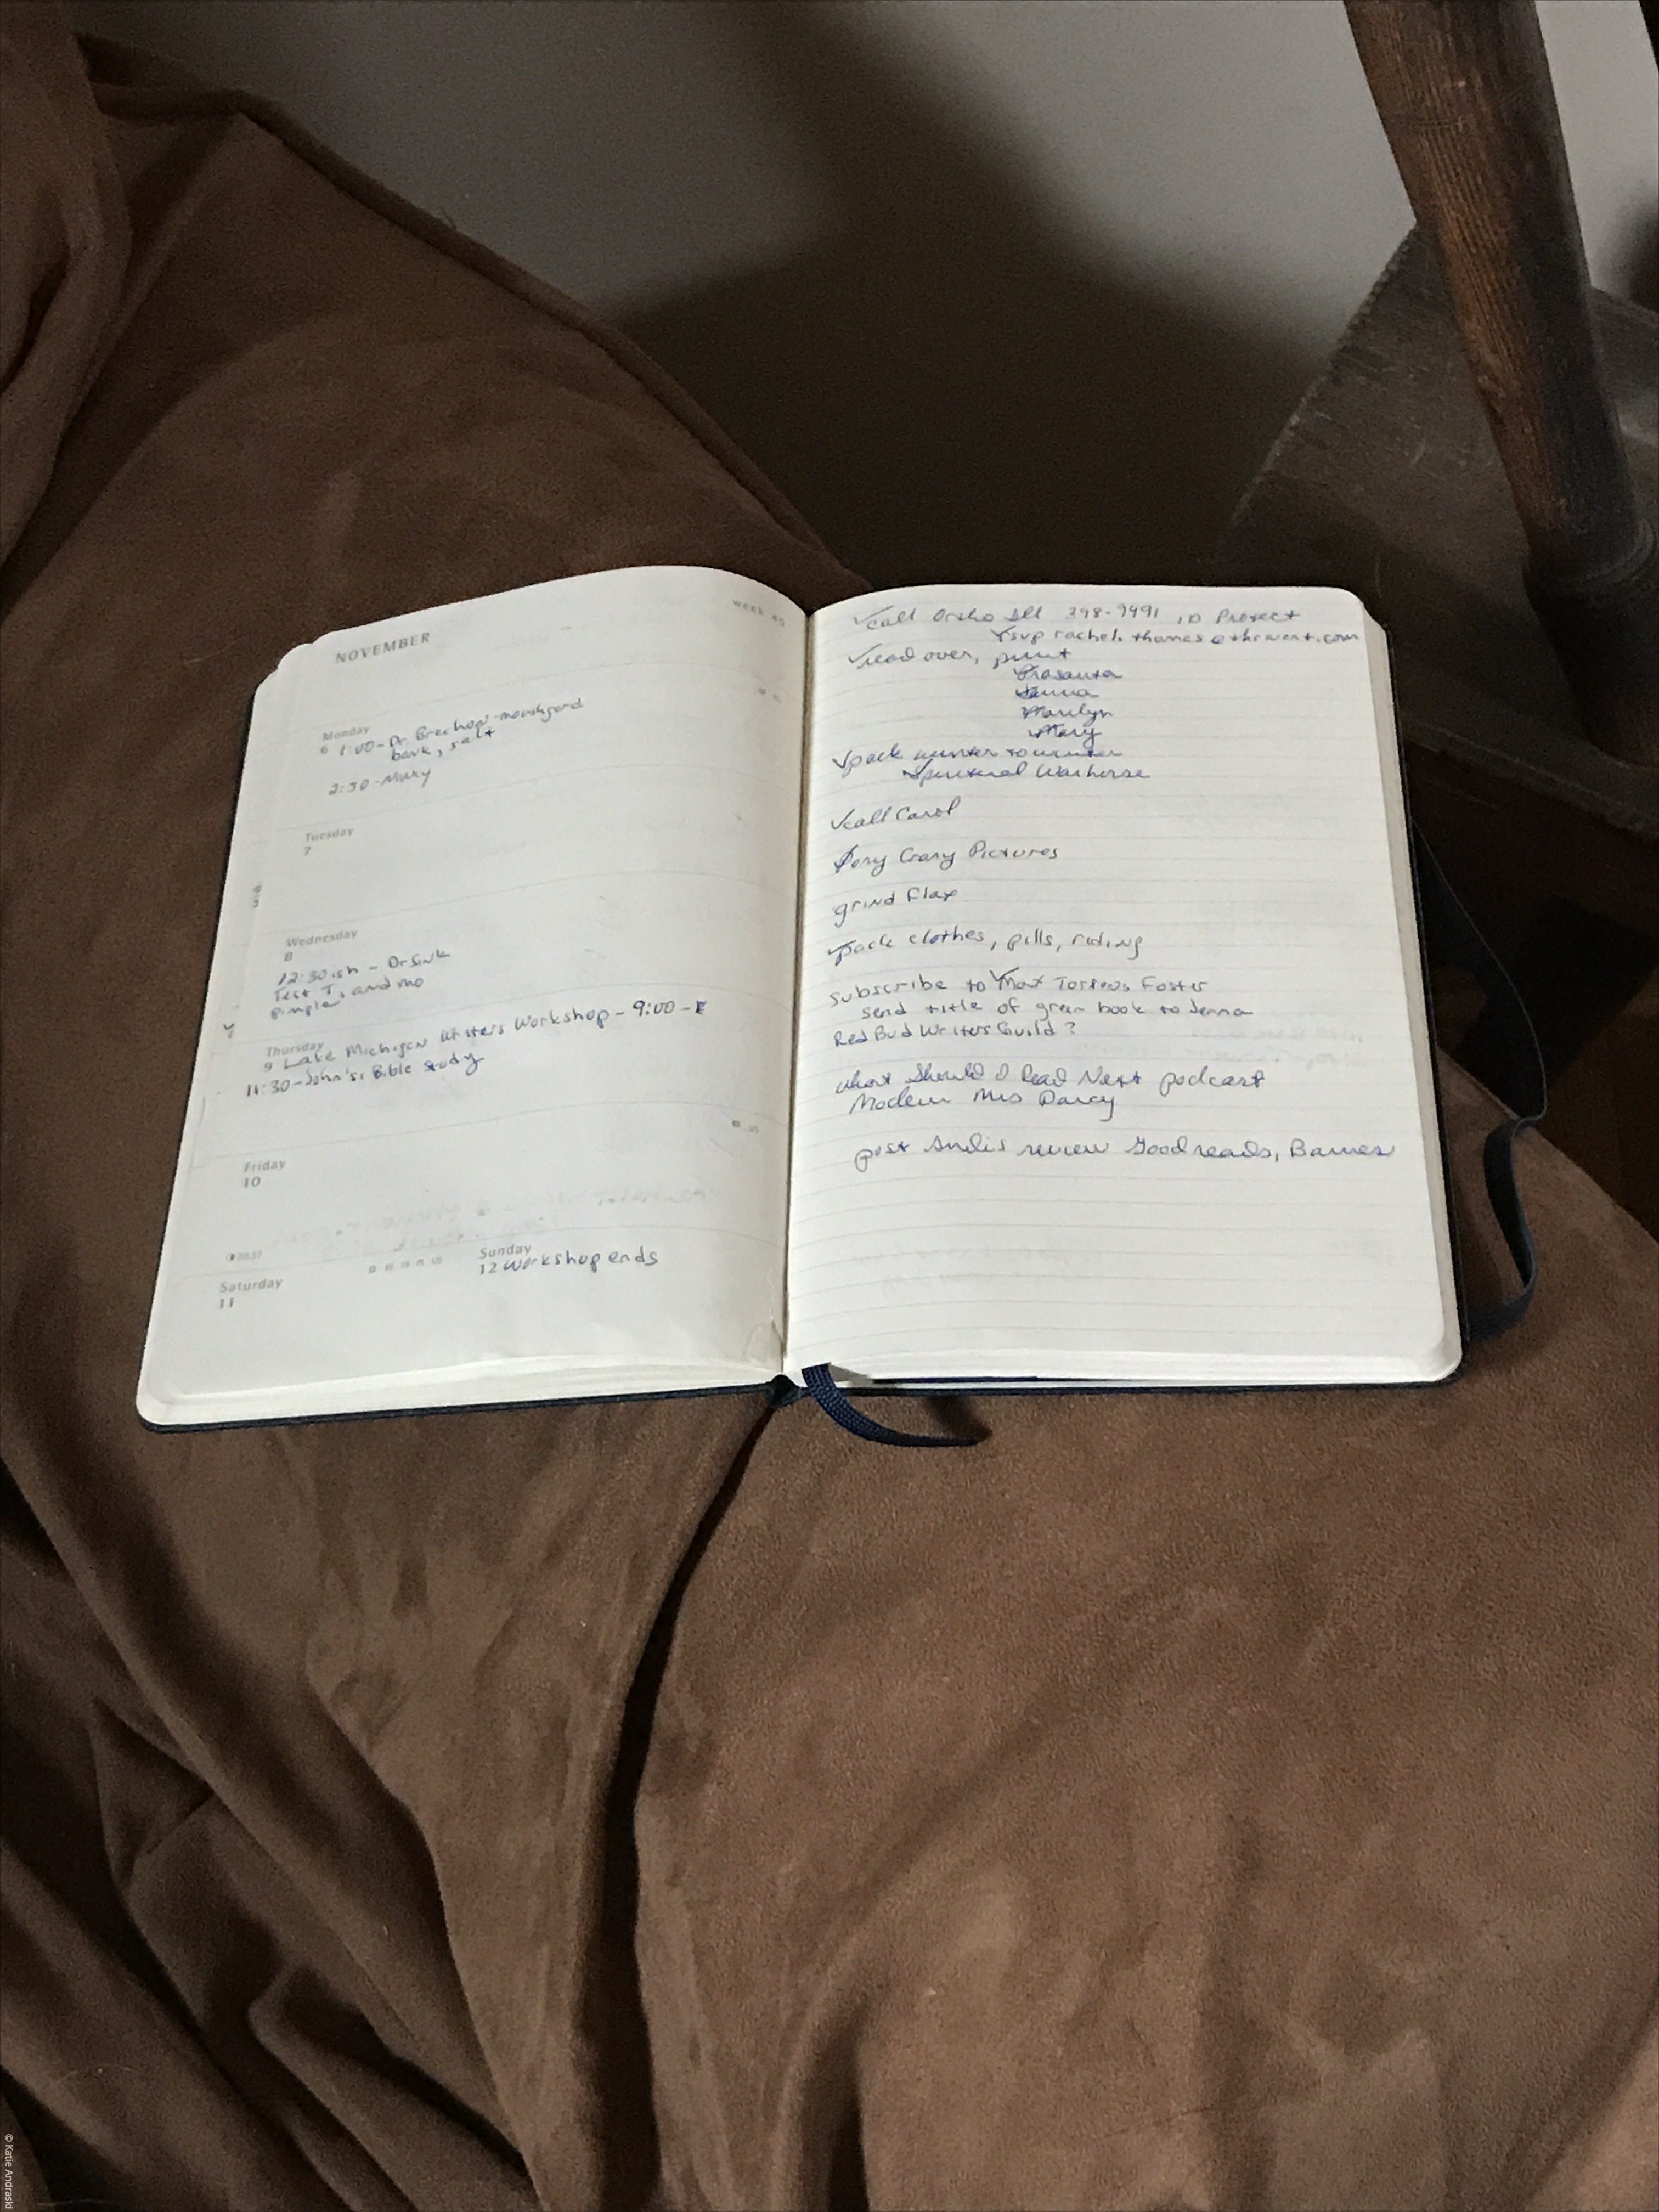 NOVEMBER
week 45
Monday
6 1:00 - Dr. Brechon - mouthguard
bank, salt
2:30 - Mary
Tuesday
7
Wednesday
8
12:30 ish - Dr Sink
Test T, and mo
pimple
Thursday
9 Lake Michigan Writers Workshop - 9:00 -
11:30 - John's, Bible study
Friday
10
Saturday
11
Sunday
12 Workshop ends
call Ortho Ill 398-9491, ID Protect
rsvp
read over, print
Prasanta
Jenna
Marilyn
Mary
pack winter to winter
Spiritual Warhorse
call Carol
Pony Crazy Pictures
grind flax
pack clothes, pills, riding
Subscribe to Foster
send title of green book to Jenna
Red Bud Writers Guild?
What Should I Read Next podcast
Modern Mrs Darcy
post review Goodreads, Barnes
© Katie Andraski